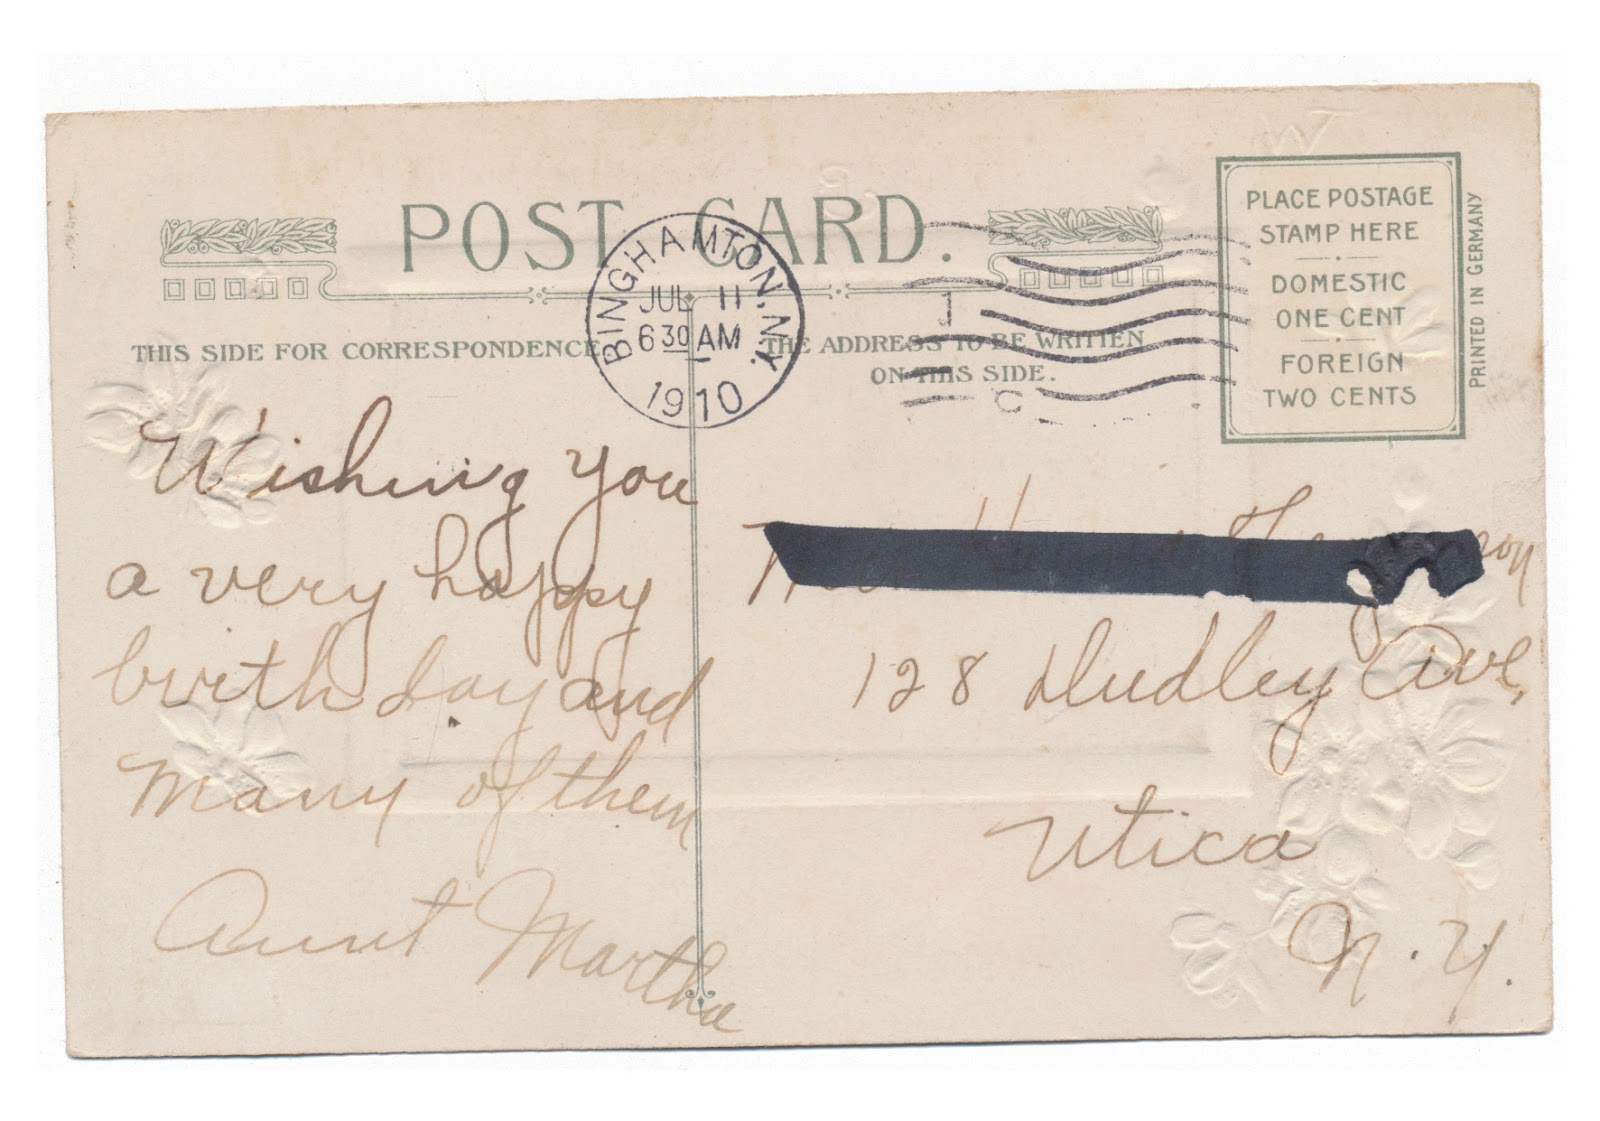 POST CARD.
BINGHAMTON. N.Y.
JUL 11
6 30 AM
1910
PLACE POSTAGE
STAMP HERE
DOMESTIC
ONE CENT
FOREIGN
TWO CENTS
PRINTED IN GERMANY
THIS SIDE FOR CORRESPONDENCE
THE ADDRESS TO BE WRITTEN
ON THIS SIDE.
Wishing you
a very happy
birth day and
many of them
Aunt Martha
128 Dudley Ave,
Utica
N.Y.